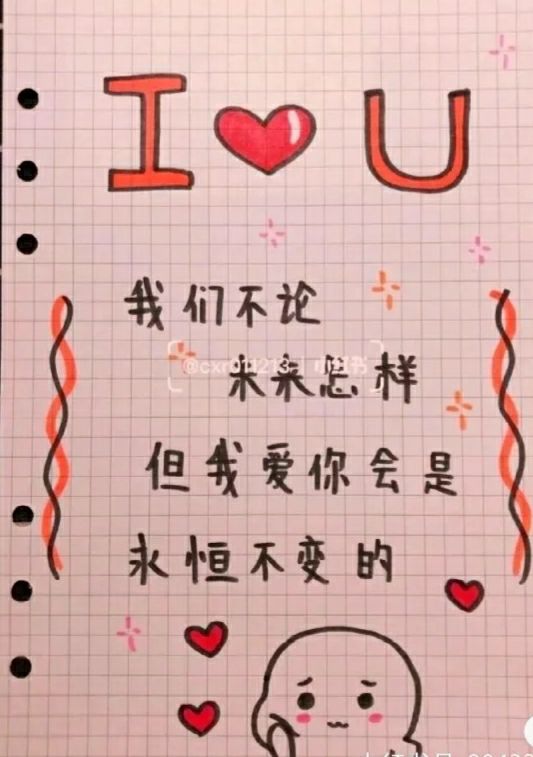 I ❤ U
我们不论
@cxr011213 | 小红书
未来怎样
但我爱你会是
永恒不变的